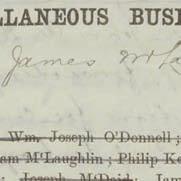 LLANEOUS BUS
James McLa
Wm. Joseph O'Donnell;
am M'Laughlin; Philip Ke
Joseph M'Daid; Jam